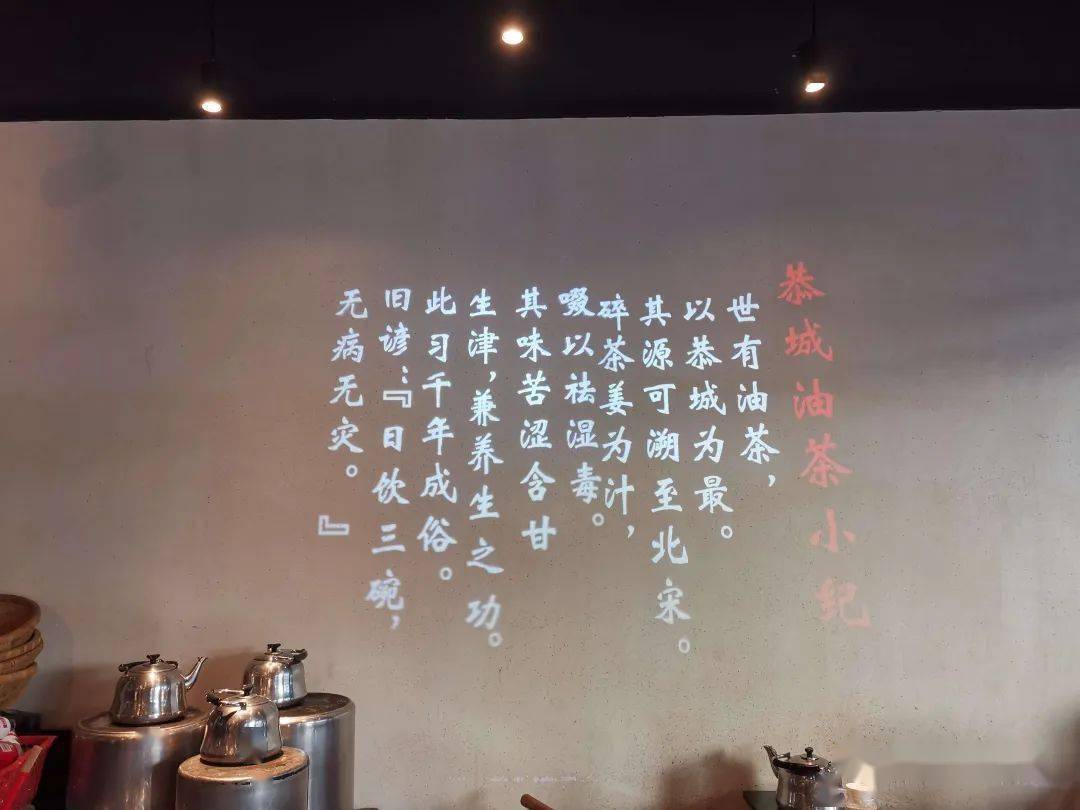 恭城油茶小纪
世有油茶，
以恭城为最。
其源可溯至北宋。
碎茶姜为汁，
啜以祛湿毒。
其味苦涩含甘
生津，兼养生之功。
此习千年成俗。
旧谚：『日饮三碗，
无病无灾。』